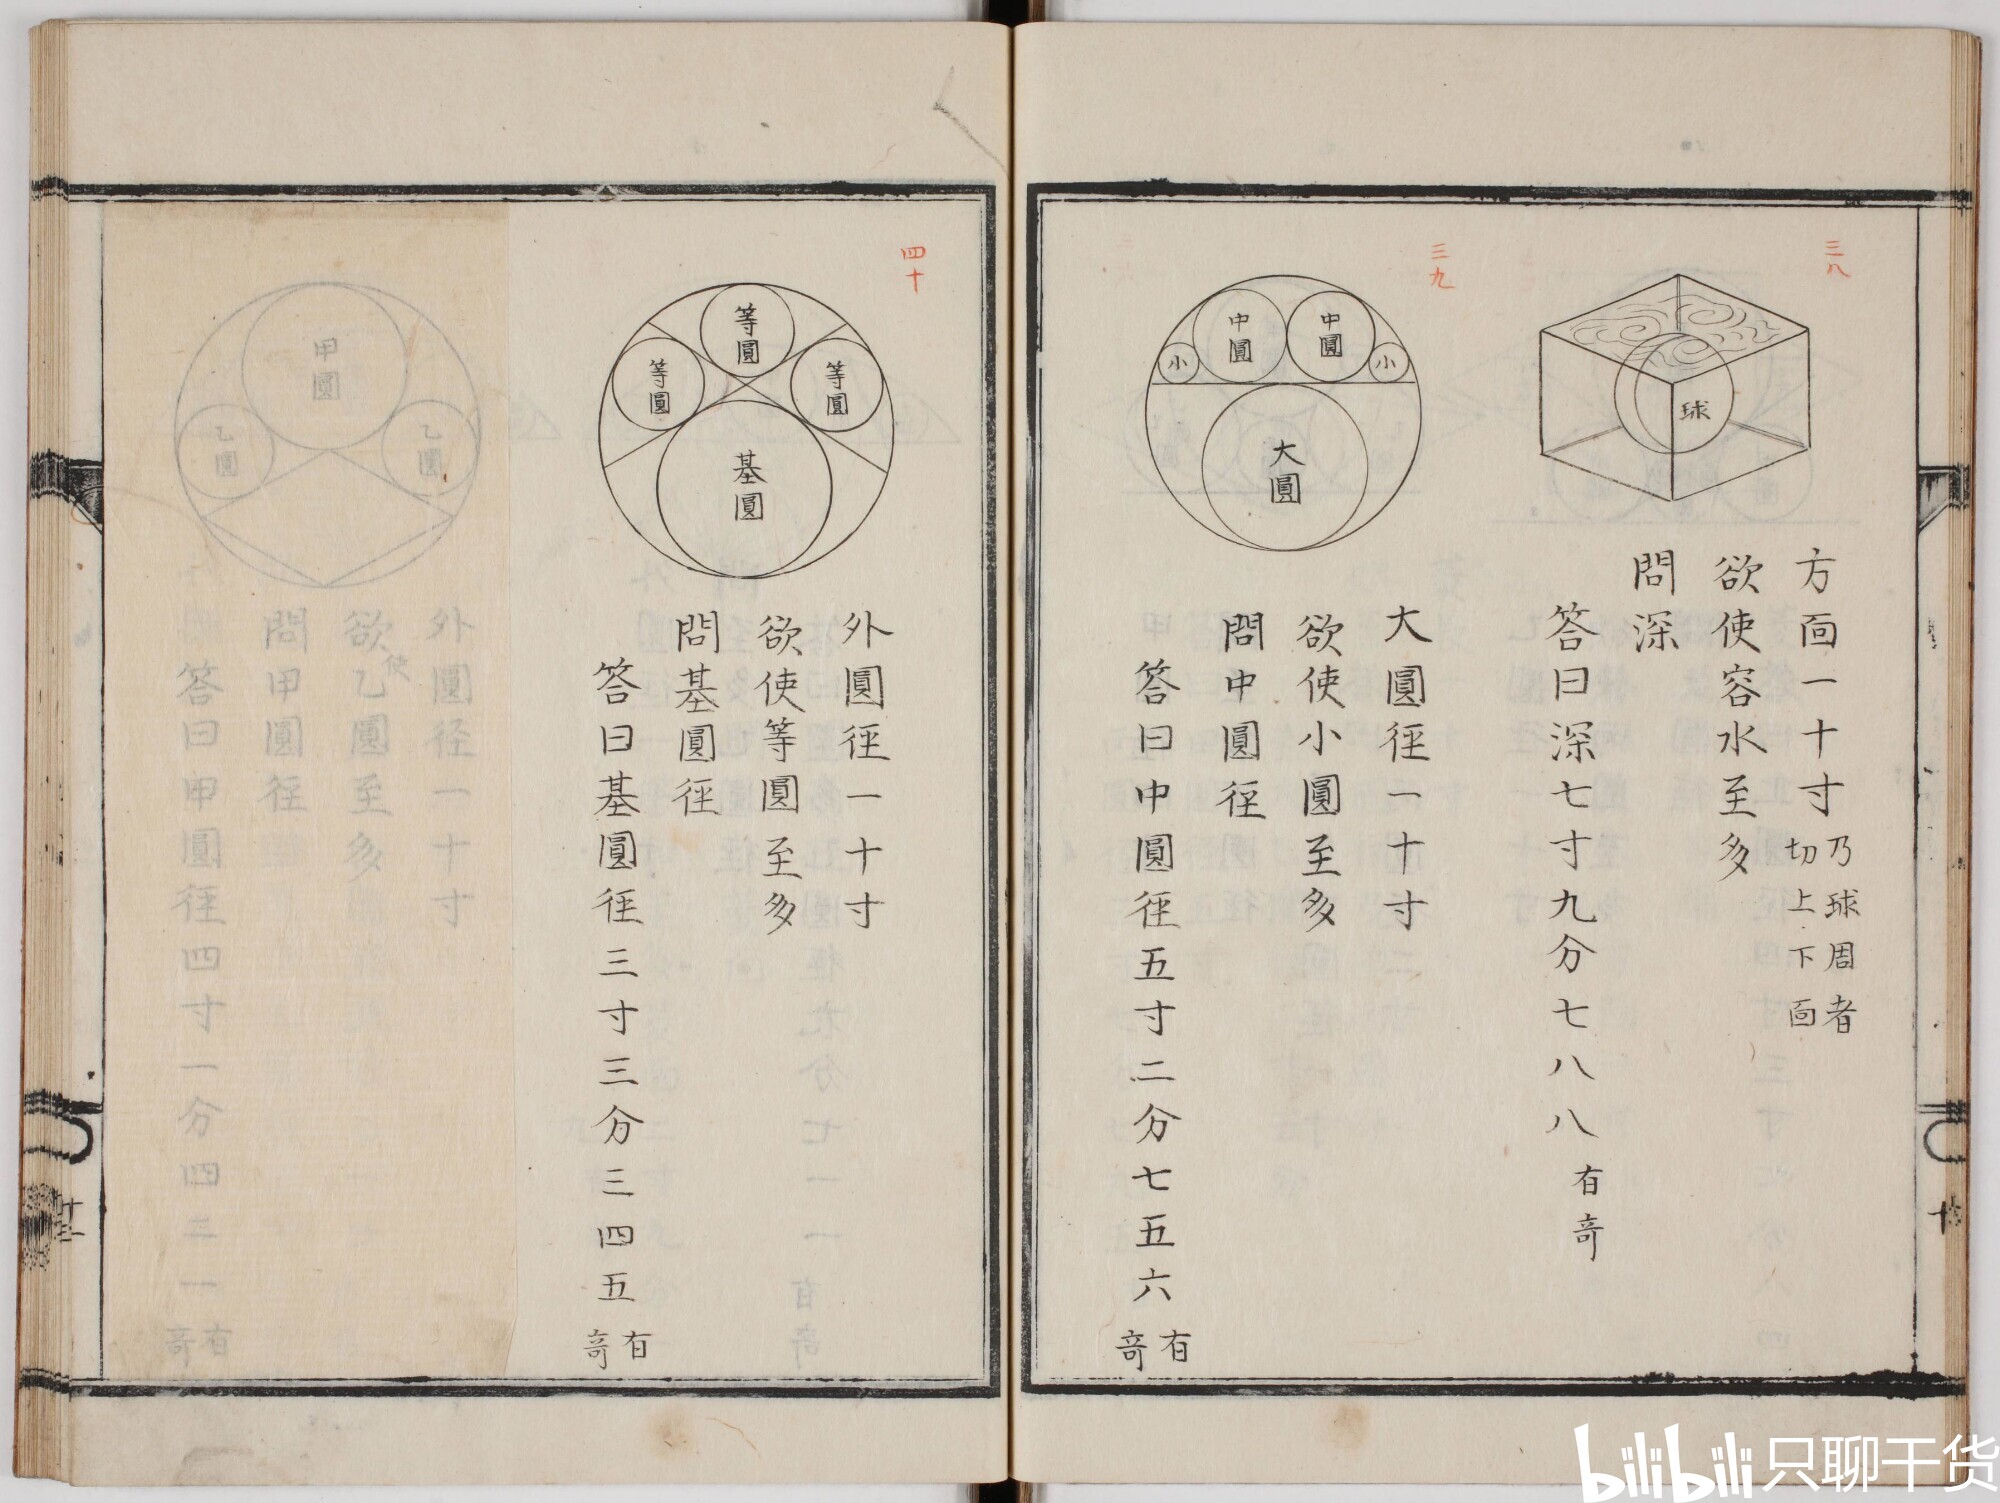 三八
球
方面一十寸
乃球周者
切上下面
欲使容水至多
問深
答曰深七寸九分七八八
有奇
三九
中圓
中圓
小
小
大圓
大圓径一十寸
欲使小圓至多
問中圓径
答曰中圓径五寸二分七五六
有奇
十
四十
等圓
等圓
等圓
基圓
外圓径一十寸
欲使等圓至多
問基圓径
答曰基圓径三寸三分三四五
有奇
甲圓
乙圓
乙圓
外圓径一十寸
欲使乙圓至多
問甲圓径
答曰甲圓径四寸一分四三一
有奇
bilibili 只聊干货